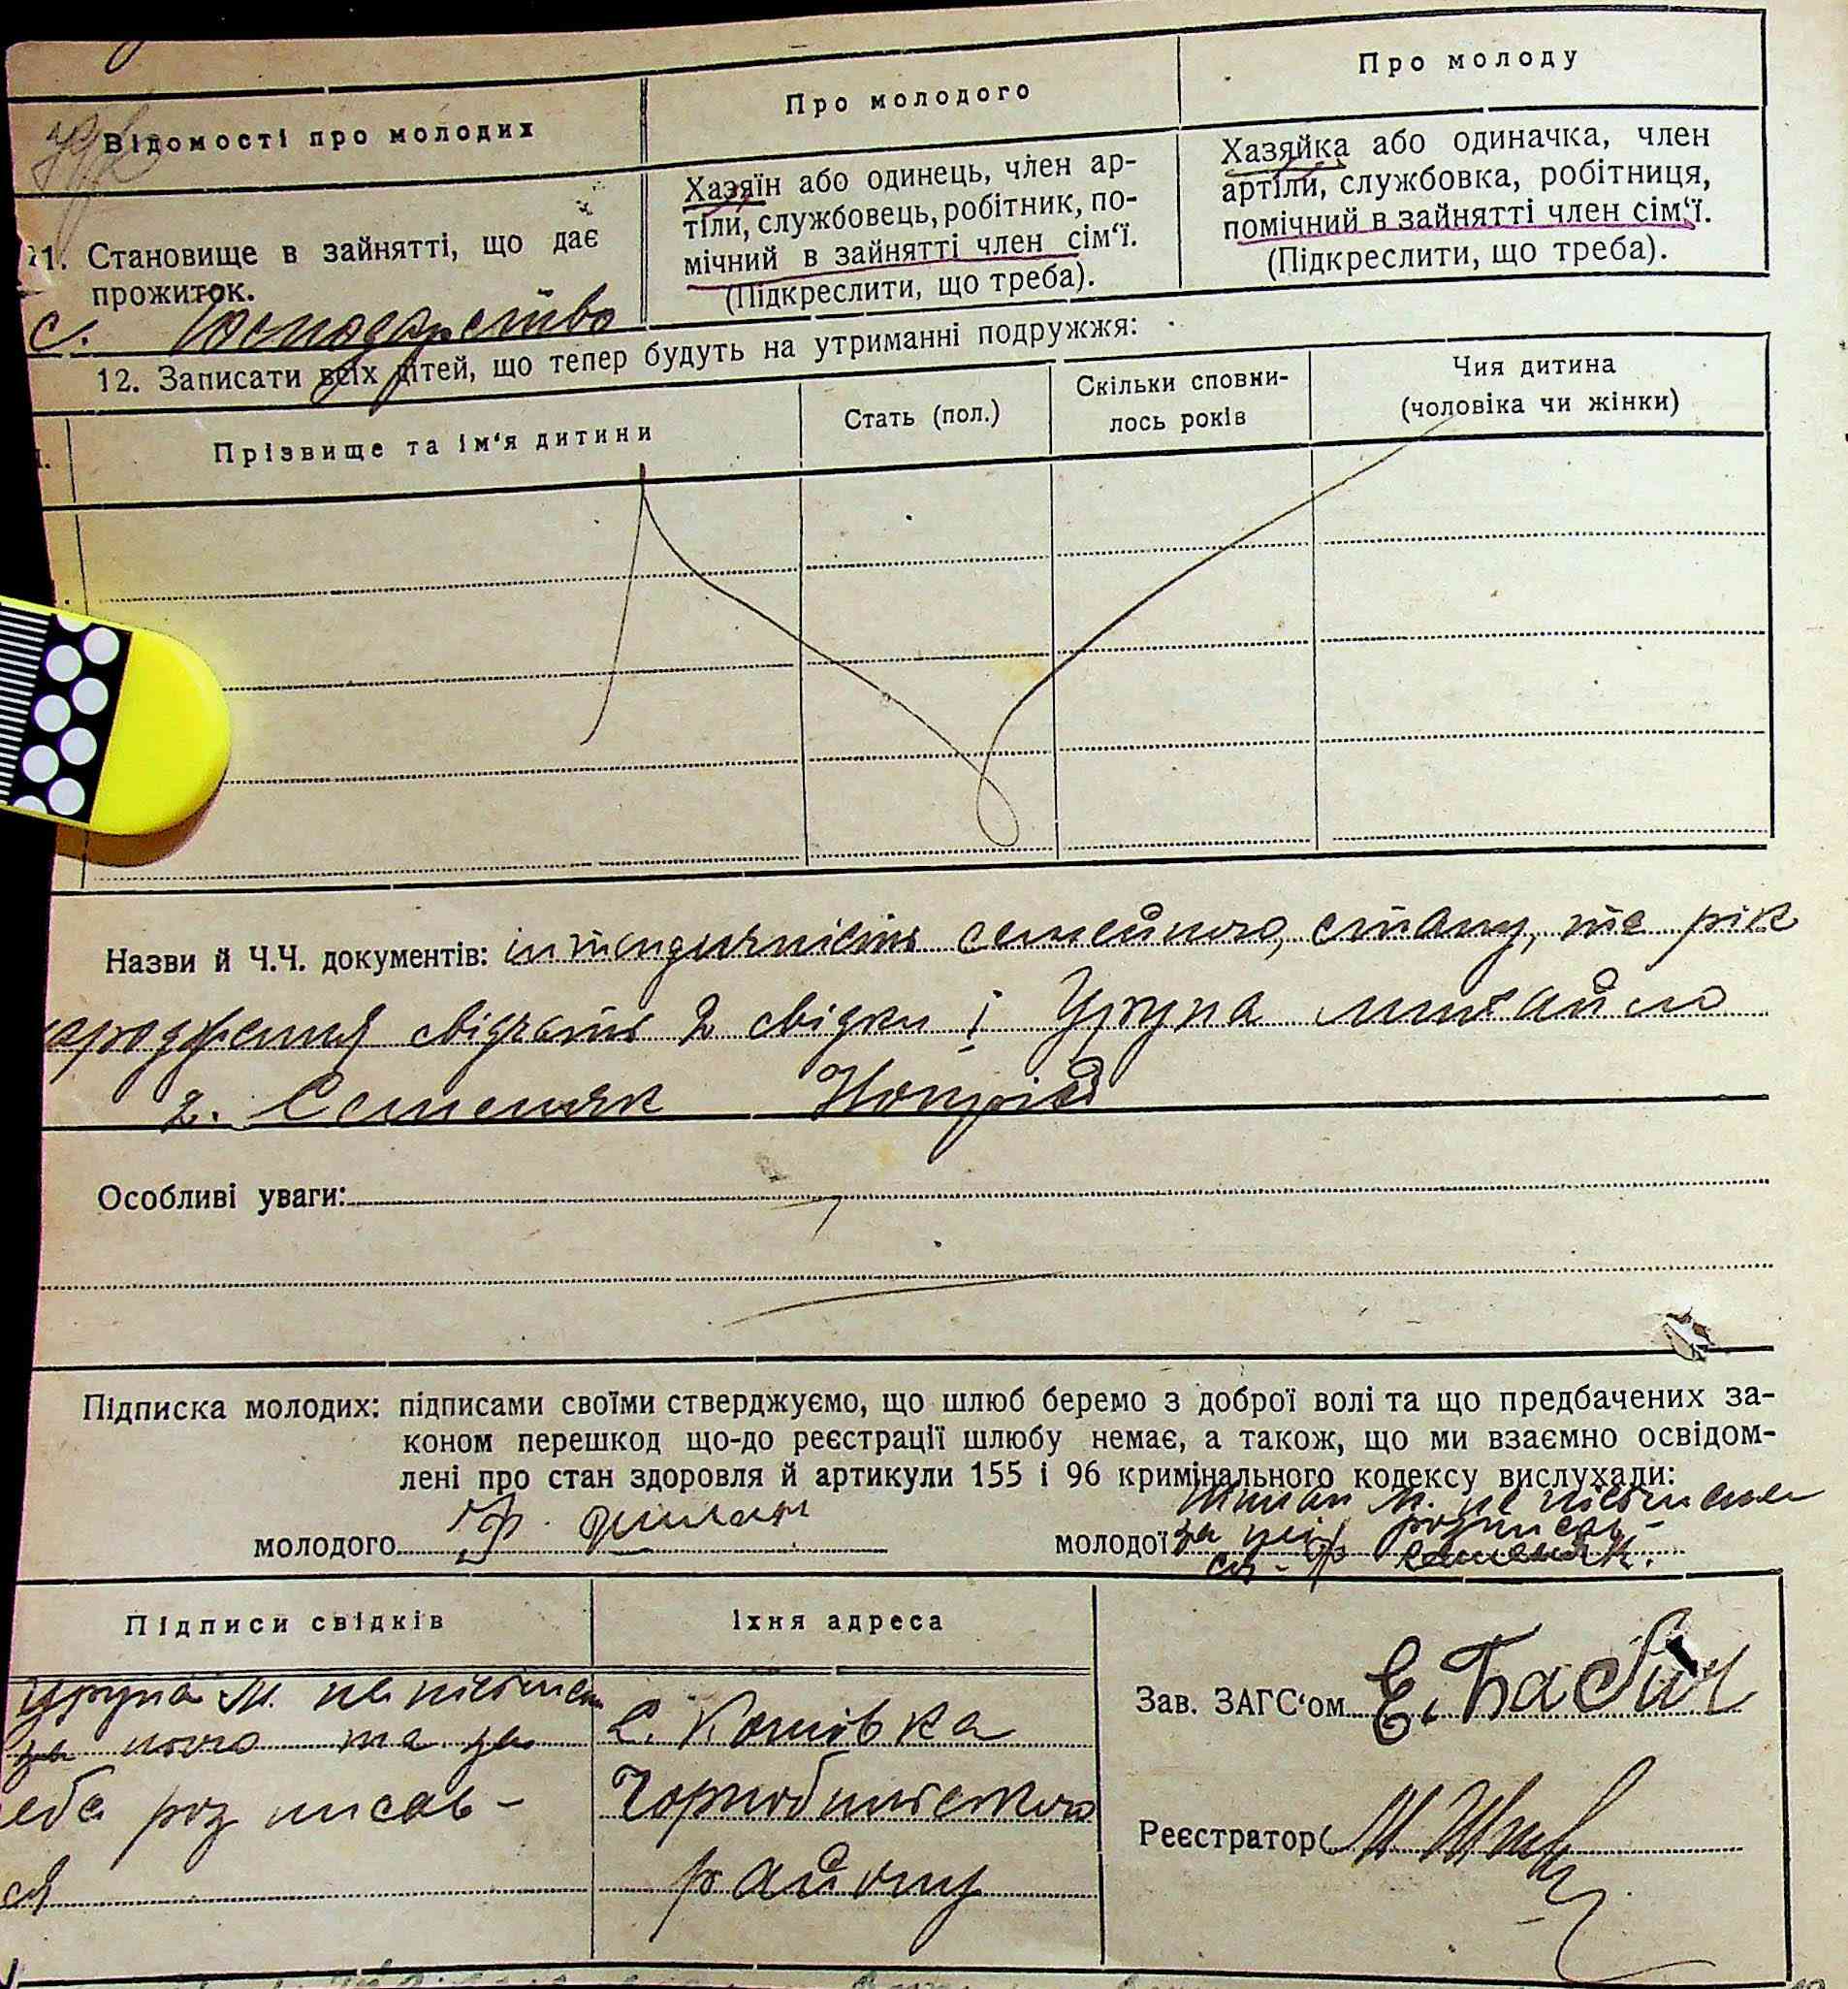 Відомості про молодих
Про молодого
Про молоду
11. Становище в зайнятті, що дає
прожиток.
с. Господарство
Хазяїн або одинець, член ар-
тіли, службовець, робітник, по-
мічний в зайнятті член сім‘ї.
(Підкреслити, що треба).
Хазяйка або одиначка, член
артіли, службовка, робітниця,
помічний в зайнятті член сім‘ї.
(Підкреслити, що треба).
12. Записати всіх дітей, що тепер будуть на утриманні подружжя:
Прізвище та ім‘я дитини
Стать (пол.)
Скільки сповни-
лось років
Чия дитина
(чоловіка чи жінки)
Назви й Ч.Ч. документів: семейного, стану, та рік
свідчать 2 свідки і Урупа михайло
2. Семеняк
Особливі уваги:
Підписка молодих: підписами своїми стверджуємо, що шлюб беремо з доброї волі та що предбачених за-
коном перешкод що-до реєстрації шлюбу немає, а також, що ми взаємно освідом-
лені про стан здоровля й артикули 155 і 96 кримінального кодексу вислухали:
молодого
молодої за неї розписав-
ся Семеняк.
Підписи свідків
Їхня адреса
Урупа М. неписьмен
за нього та за
себе розписав-
ся
с. Копівка
Чорнобильского
району
Зав. ЗАГС‘ом Е. Бабич
Реєстратор М